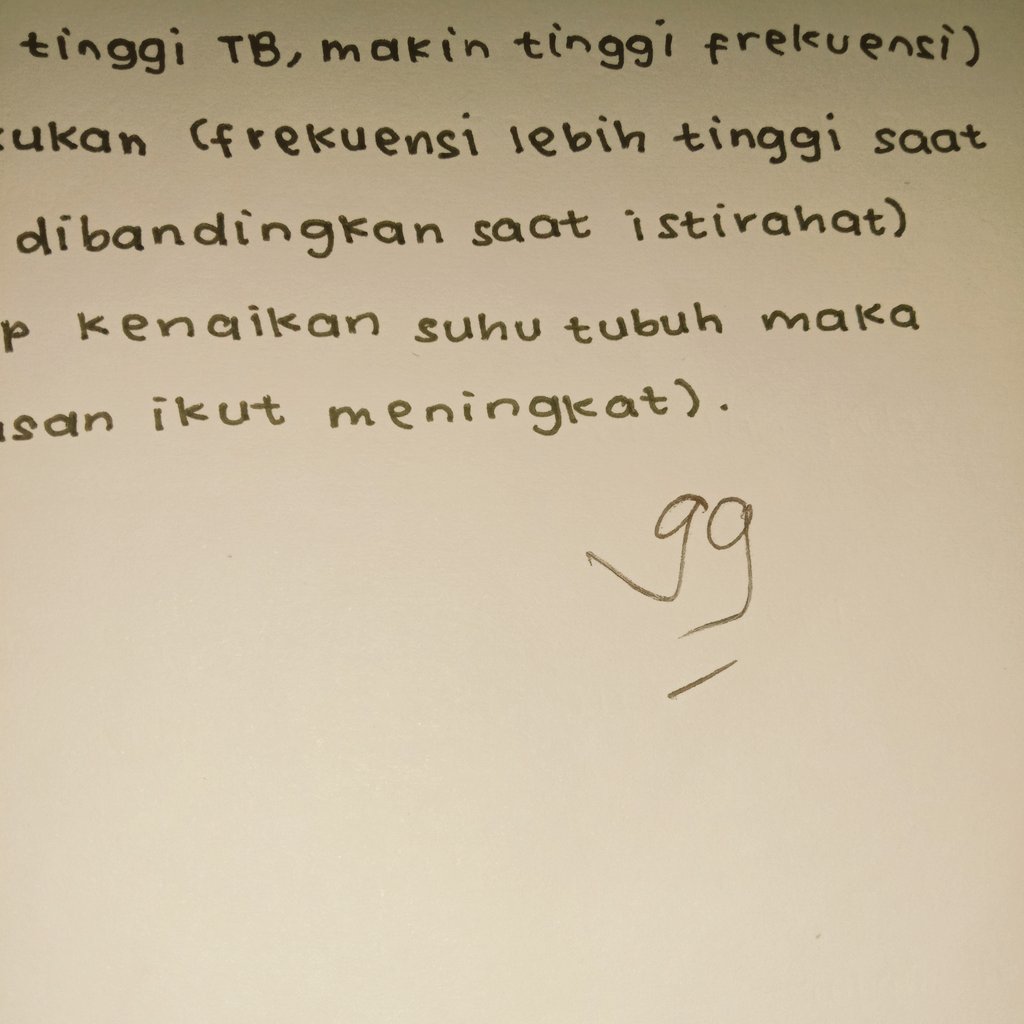 tinggi TB, makin tinggi frekuensi)
(frekuensi lebih tinggi saat
dibandingkan saat istirahat)
kenaikan suhu tubuh maka
ikut meningkat).
99